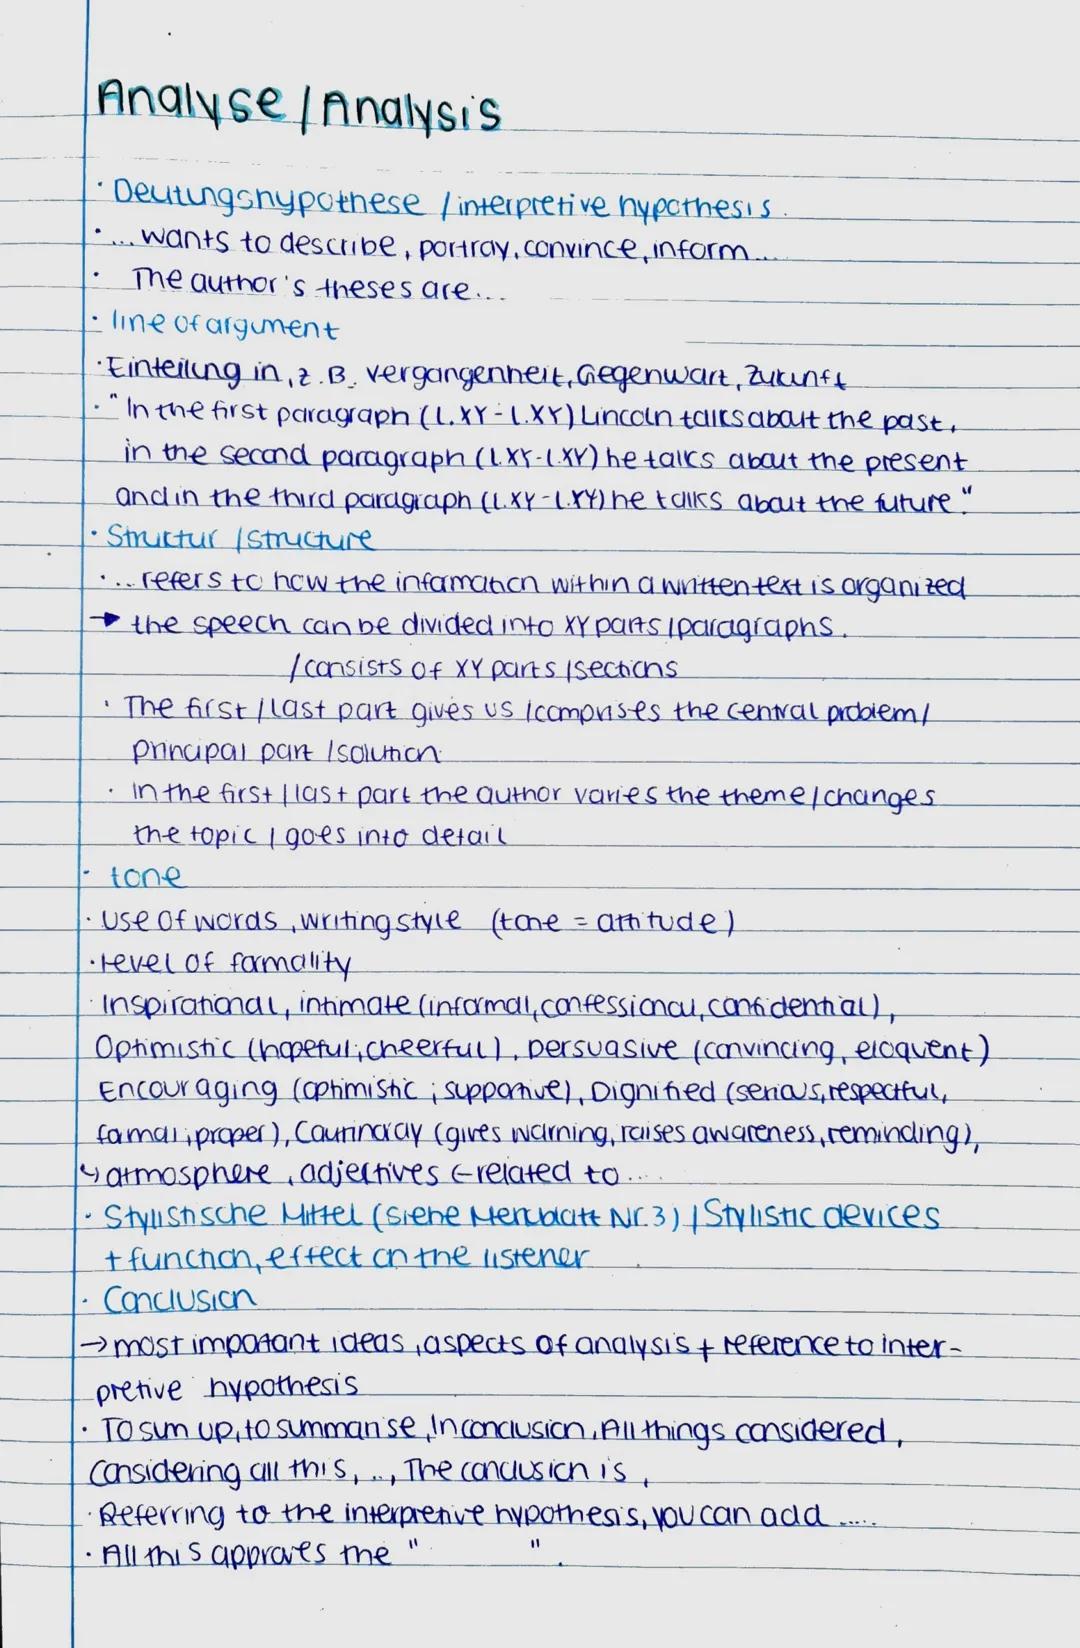 Analyse / Analysis
· Deutungshypothese / interpretive hypothesis.
· ... wants to describe, portray, convince, inform ...
· The author's theses are...
· line of argument
· Einteilung in, z.B. Vergangenheit, Gegenwart, Zukunft
· "In the first paragraph (l.XY-l.XY) Lincoln talks about the past,
in the second paragraph (l.XY-l.XY) he talks about the present
and in the third paragraph (l.XY-l.XY) he talks about the future."
· Struktur / structure
· ... refers to how the information within a written text is organized
→ the speech can be divided into XY parts / paragraphs.
/ consists of XY parts / sections
· The first / last part gives us / comprises the central problem /
principal part / solution
· In the first / last part the author varies the theme / changes
the topic / goes into detail
· tone
· Use of words, writing style (tone = attitude)
· level of formality
· Inspirational, intimate (informal, confessional, confidential),
Optimistic (hopeful; cheerful), persuasive (convincing, eloquent)
Encouraging (optimistic; supportive), Dignified (serious, respectful,
formal; proper), (gives warning, raises awareness, reminding),
↳ atmosphere, adjectives ← related to ....
· Stylistische Mittel (siehe Merkblatt Nr. 3) / Stylistic devices
+ function, effect on the listener
· Conclusion
→ most important ideas, aspects of analysis + reference to inter-
pretive hypothesis
· To sum up, to summarise, In conclusion, All things considered,
Considering all this, .., The conclusion is,
· Referring to the interpretive hypothesis, you can add .....
· All this approves the "          ".